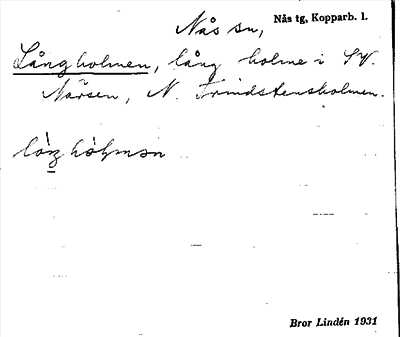 Nås sn, Nås tg, Kopparb. l.
Långholmen, lång holme i SV.
Närsen, N. Trindstensholmen.
Bror Lindén 1931